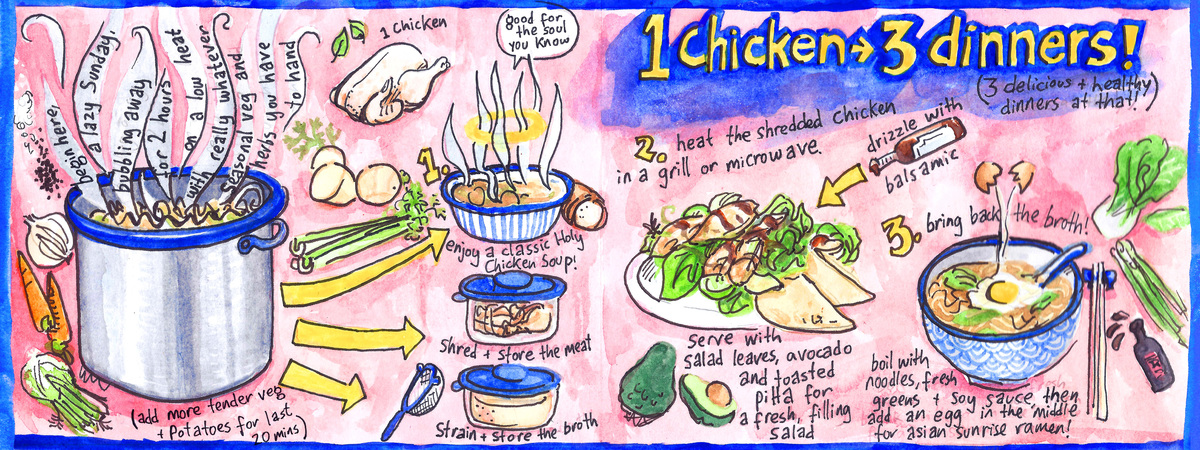 Begin here,
a lazy Sunday,
bubbling away
for 2 hours
on a low heat
with really whatever
seasonal veg and
herbs you have
to hand
(add more tender veg
+ potatoes for last
20 mins)
1 chicken
good for
the soul
you know
1.
enjoy a classic Holy
Chicken Soup!
Shred + store the meat
Strain + store the broth
1 chicken → 3 dinners!
(3 delicious + healthy
dinners at that!)
2. heat the shredded chicken
in a grill or microwave.
drizzle with
balsamic
serve with
salad leaves, avocado
and toasted
pitta for
a fresh, filling
salad
3. bring back the broth!
boil with
noodles, fresh
greens + soy sauce, then
add an egg in the middle
for asian sunrise ramen!